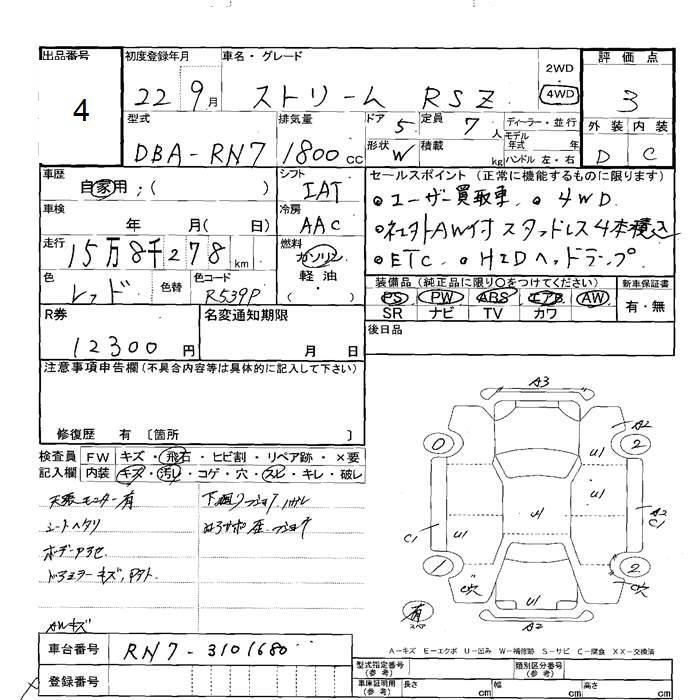 出品番号 4
初度登録年月 22 9月
車名・グレード ストリーム RSZ
2WD・4WD
評価点 3
型式 DBA-RN7
排気量 1800cc
ドア 5
定員 7人
ディーラー・並行
モデル年式 年
形状 W
積載 kg
ハンドル 左・右
外装 D
内装 C
車歴 自家用;( )
シフト IAT
セールスポイント (正常に機能するものに限ります)
ユーザー買取車. 4WD.
車検 年 月( 日)
冷房 AAC
社外AW付スタッドレス4本積込
ETC. HIDヘッドランプ
走行 15万8千278km
燃料 ガソリン 軽油 ( )
色 レッド
色替
色コード R539P
装備品 (純正品に限り○をつけてください)
PS PW ABS エアB AW
SR ナビ TV カワ
新車保証書 有・無
R券 12300円
名変通知期限 月 日
後日品
注意事項申告欄 (不具合内容等は具体的に記入して下さい)
修復歴 有 〔箇所 〕
検査員記入欄
FW キズ・飛石・ヒビ割・リペア跡・×要
内装 キズ・汚レ・コゲ・穴・スレ・キレ・破レ
天張モニター有
シートヘタリ
ボデー下色
ドアミラーキズ,
AWキズ
A3
0 A2 2
U1 U1
U1 U1 U1
C1 A2 C1
1 2
C穴 U1 C穴
有 スペア
A2
A-キズ E-エクボ U-凹み W-補修跡 S-サビ C-腐食 XX-交換済
車台番号 RN7-3101680
登録番号
型式指定番号 (参考)
類別区分番号 (参考)
車庫証明用 (参考) 長さ cm 幅 cm 高さ cm